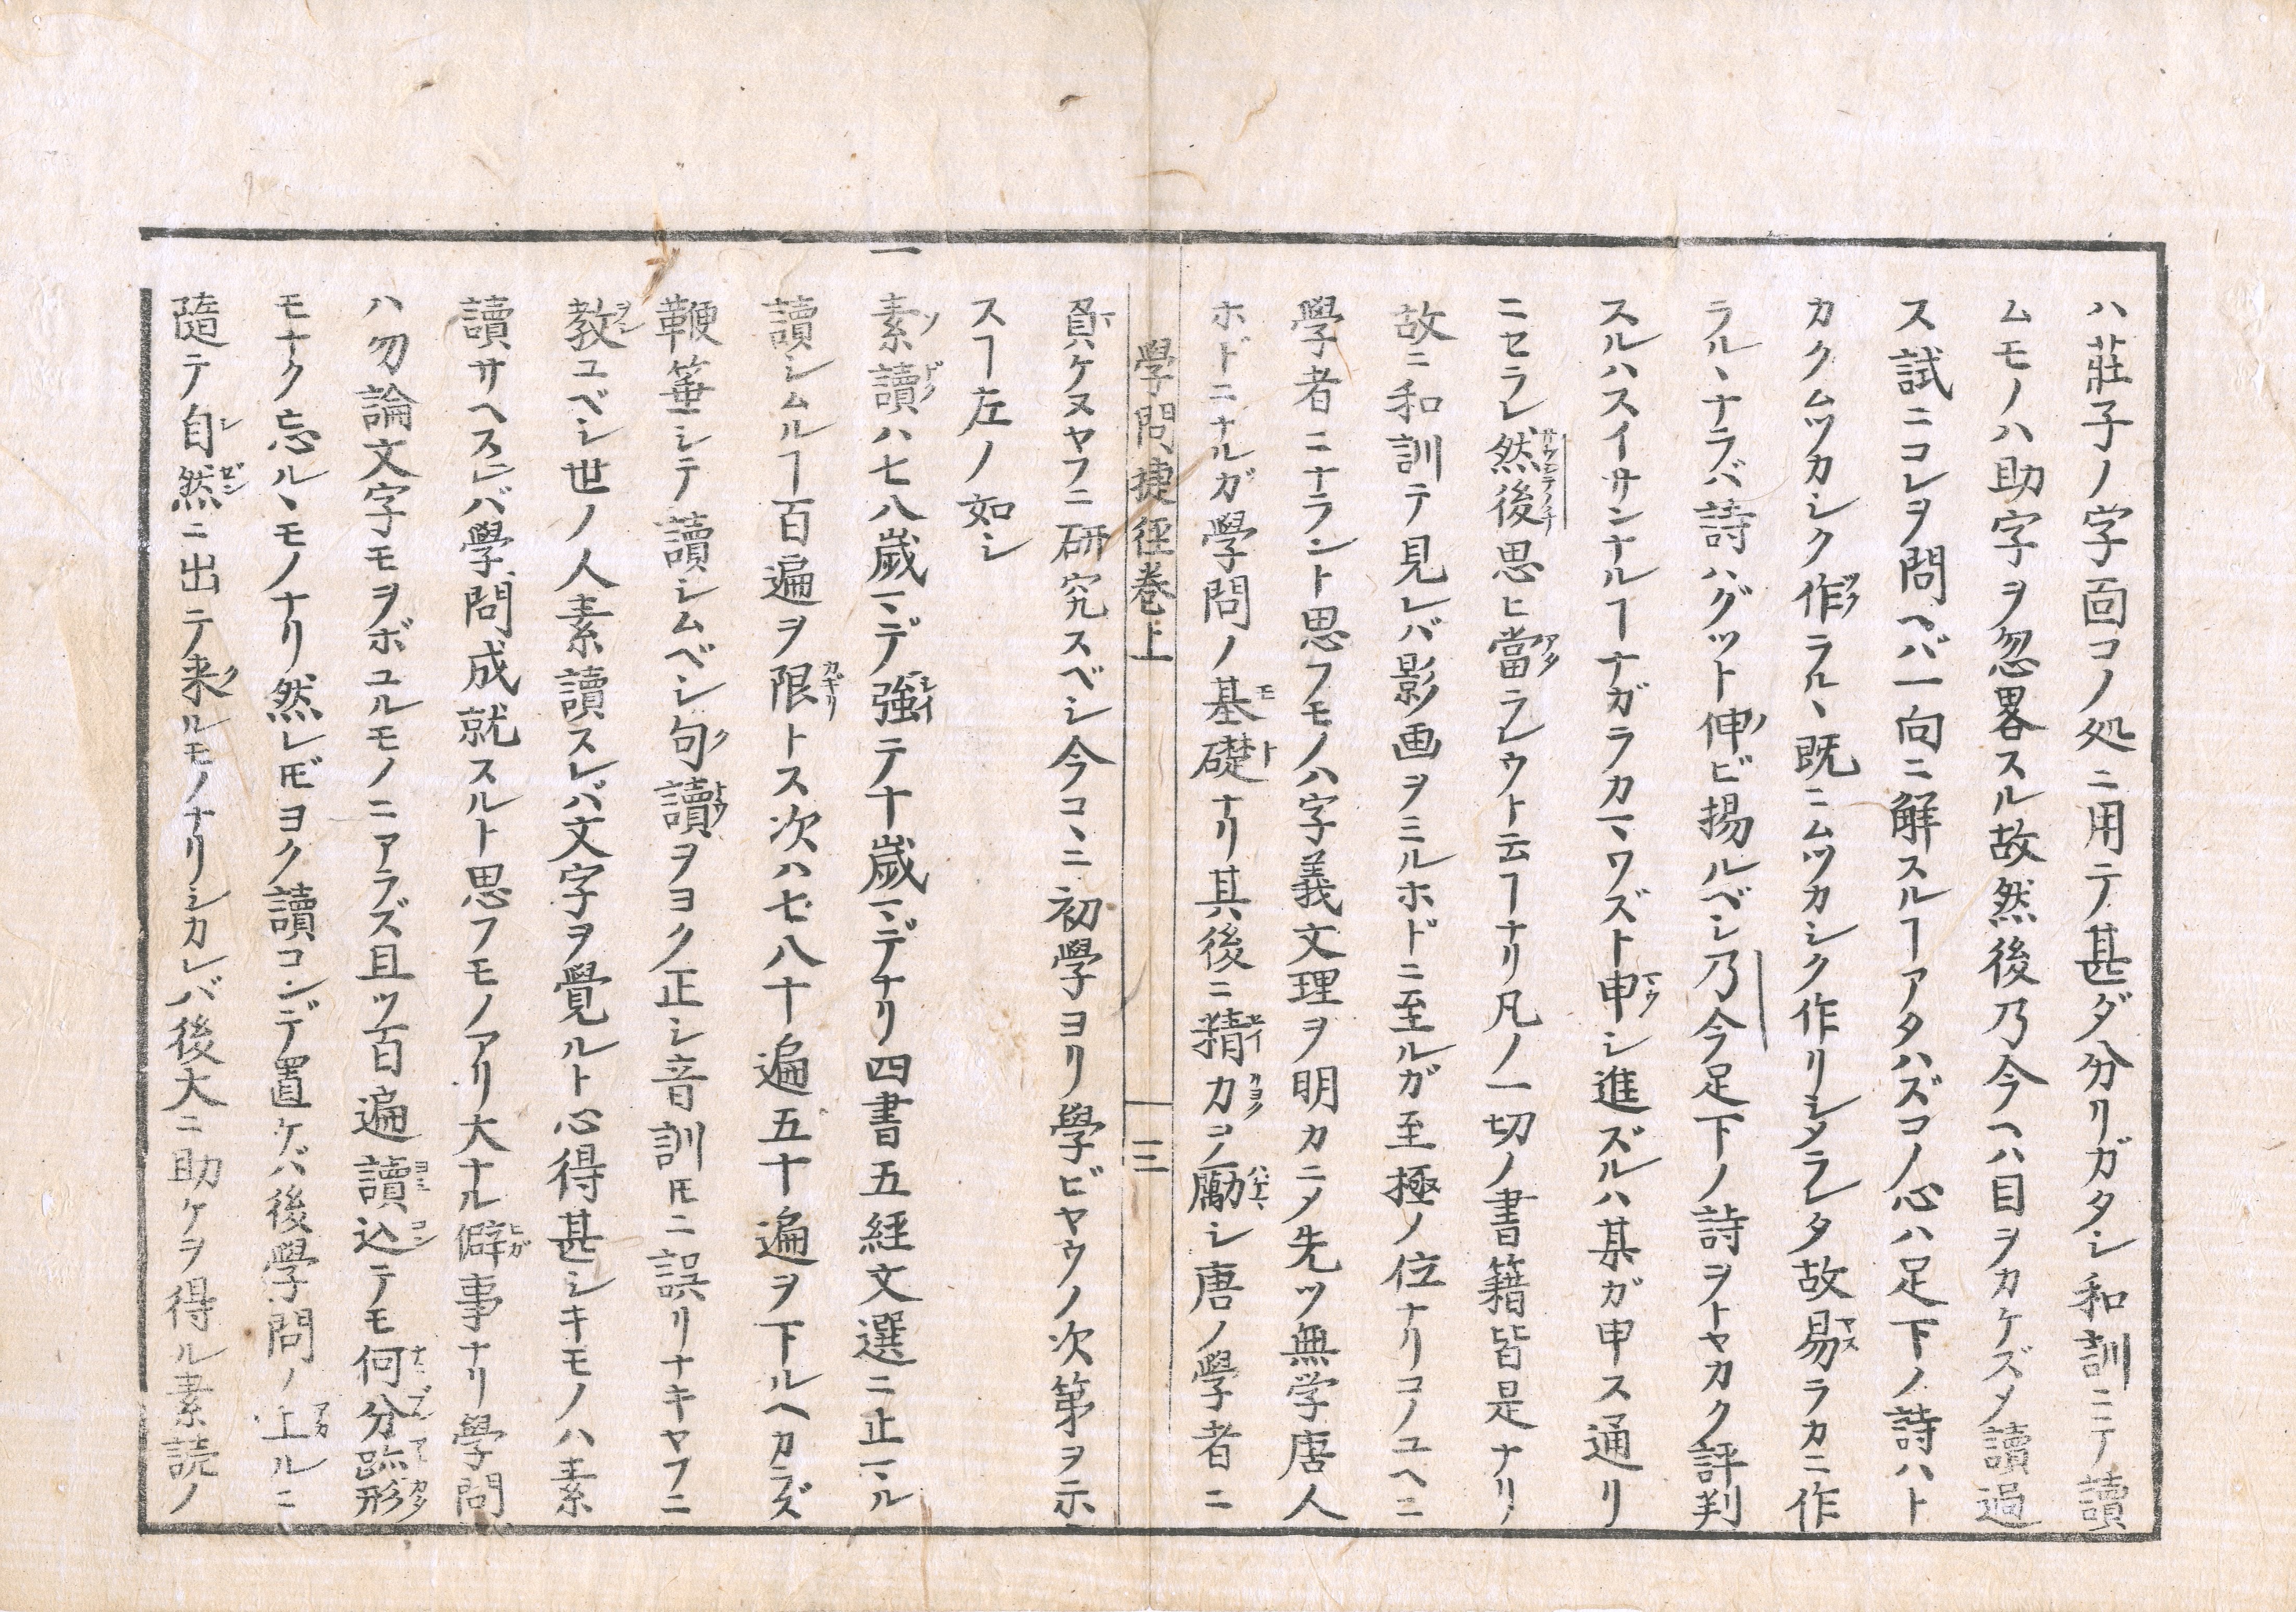 ハ莊子ノ字面コノ処ニ用テ甚ダ分リガタシ和訓ニテ讀
ムモノハ助字ヲ忽畧スル故然後乃今ヘハ目ヲカケズ〆讀過
ス試ニコレヲ問ヘバ一向ニ解スルヿアタハズコノ心ハ足下ノ詩ハト
カクムツカシク作ラル、既ニムツカシク作リシタラレタ故易ラカニ作
ラル、ナラバ詩ハグット伸ビ揚ルベシ乃今足下ノ詩ヲトヤカク評判
スルハスイサンナルヿナガラカマワズト申シ進ズルハ某ガ申ス通リ
ニセラレ然後思ヒ當ラレウト云ヿナリ凡ノ一切ノ書籍皆是ナリ
故ニ和訓テ見レバ影画ヲミルホドニ至ルガ至極ノ位ナリコノユヘニ
學者ニナラント思フモノハ字義文理ヲ明カニ〆先ツ無学唐人
ホドニナルガ學問ノ基礎ナリ其後ニ精力ヲ勵シ唐ノ學者ニ
學問捷徑巻上 三
負ケヌヤフニ研究スベシ今コ、ニ初學ヨリ學ビヤウノ次第ヲ示
スヿ左ノ如シ
一素讀ハ七八歳マデ強テ十歳マデナリ四書五経文選ニ止マル
讀シムルヿ百遍ヲ限トス次ハ七八十遍五十遍ヲ下ルヘカラズ
鞭箠シテ讀シムベシ句讀ヲヨク正シ音訓𪜈ニ誤リナキヤフニ
教ユベシ世ノ人素讀スレバ文字ヲ覺ルト心得甚シキモノハ素
讀サヘスレバ學問成就スルト思フモノアリ大ナル僻事ナリ學問
ハ勿論文字モヲボユルモノニアラズ且ツ百遍讀込テモ何分蹤形
モナク忘ル、モノナリ然レ𪜈ヨク讀コンデ置ケバ後學問ノ上ルニ
隨テ自然ニ出テ来ルモノナリシカレバ後大ニ助ケヲ得ル素読ノ